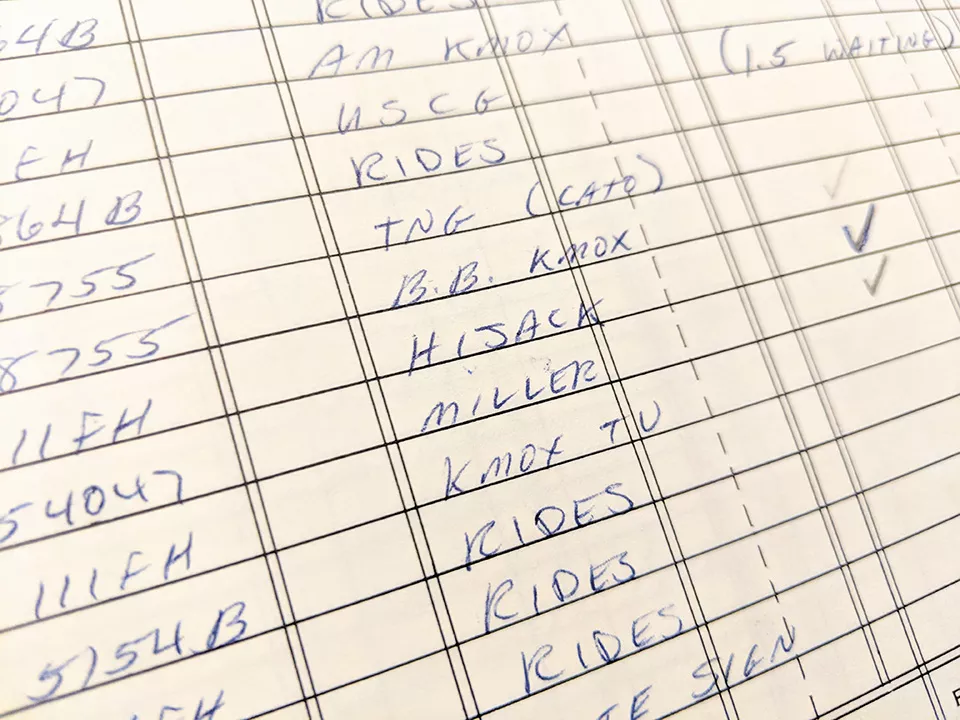 64B RIDES
047 AM KMOX
FH USCG (1.5 WAITING)
864B RIDES
8755 TNG (CATO)
8755 B.B. KMOX ✓
11FH HIJACK ✓
54047 MILLER ✓
111FH KMOX TV
5154B RIDES
FH RIDES
RIDES
TE SIGN